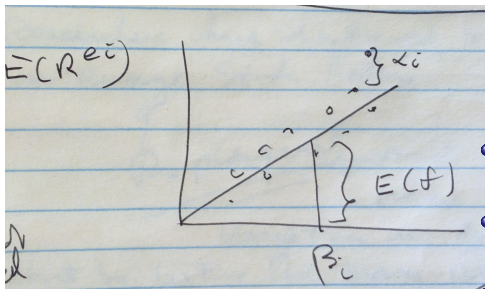 E(R^{ei})
αi
E(f)
βi